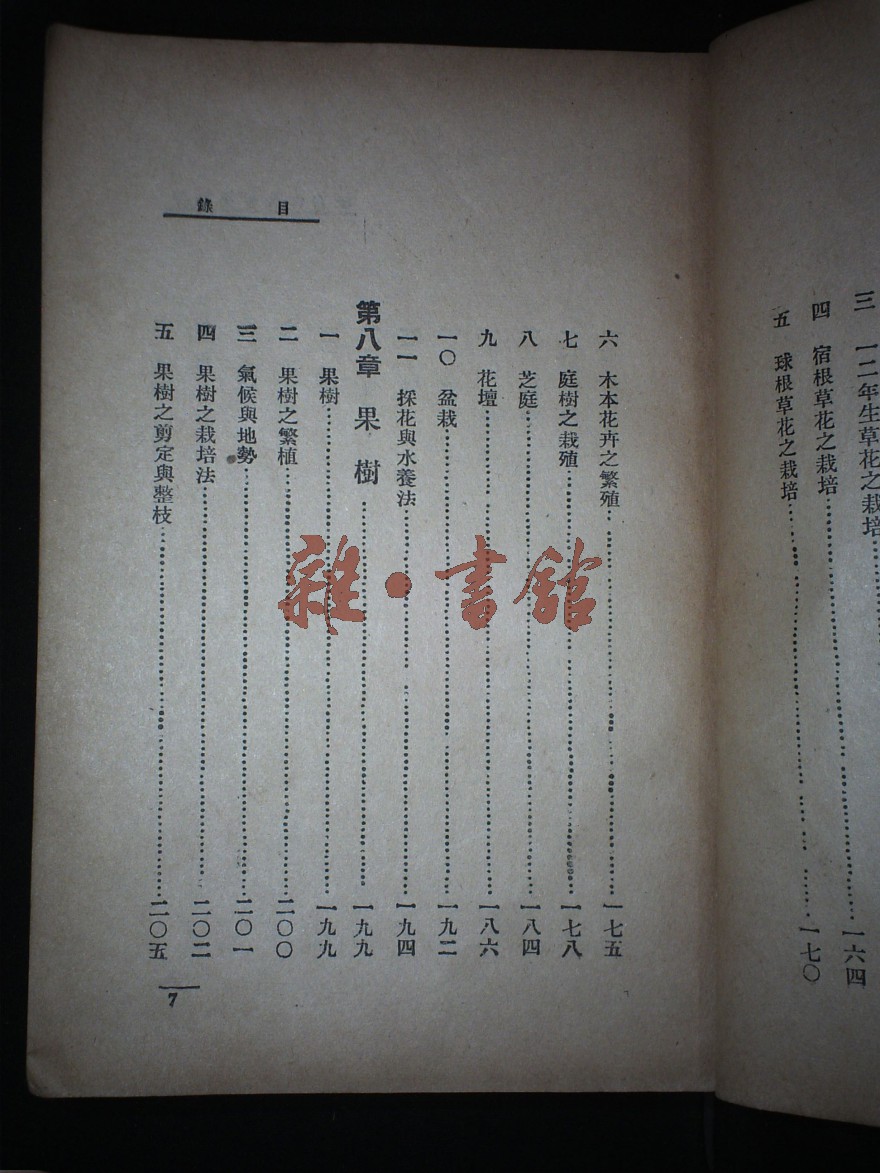 三　一二年生草花之栽培……一六四
四　宿根草花之栽培……一七〇
五　球根草花之栽培……
目錄
六　木本花卉之繁殖……一七五
七　庭樹之栽殖……一七八
八　芝庭……一八四
九　花壇……一八六
一〇　盆栽……一九二
一一　採花與水養法……一九四
第八章　果樹……一九九
一　果樹……一九九
二　果樹之繁植……二〇〇
三　氣候與地勢……二〇一
四　果樹之栽培法……二〇二
五　果樹之剪定與整枝……二〇五
7
雜·書館